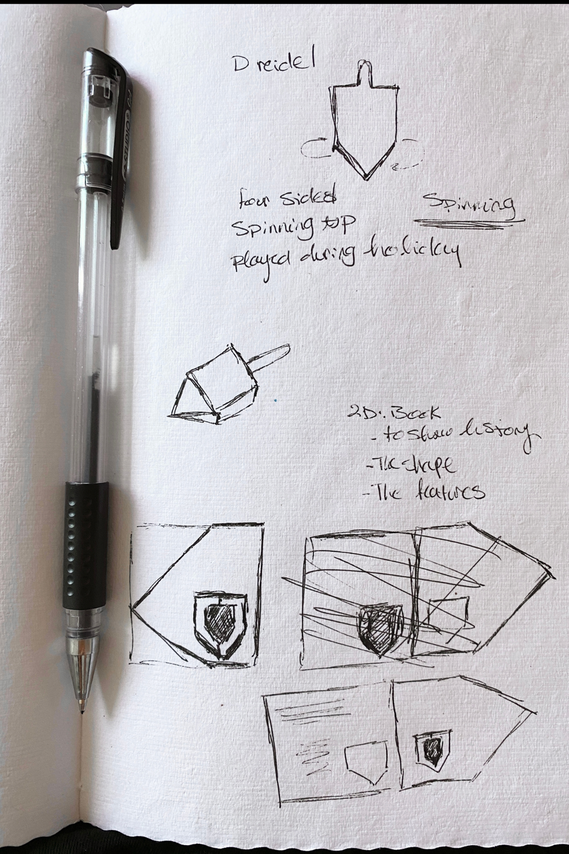 Dreidel
four sided
Spinning top
played during holiday
Spinning
2D: Book
- to show history
- The shape
- The features